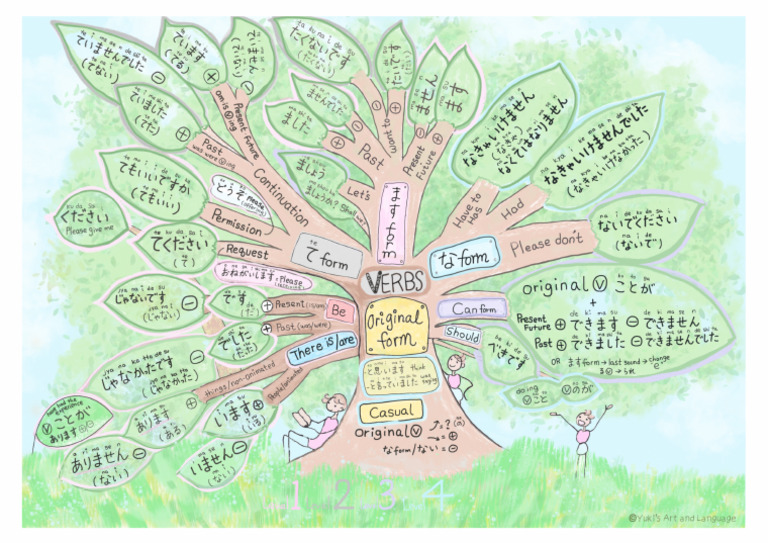 ていませんでした
(てない)
ています
(てる)
いません
たくないです
(たくない)
たいです
(たい)
ません
ます
なきゃいけません
(なきゃ)
なくてはなりません
なきゃいけませんでした
(なきゃいけなかった)
ていました
(てた)
Present future
am is Ⓥing
Past
was were Ⓥing
ませんでした
ました
Past
want to
Present
Future
ましょう
ましょうか?
Let's
Shall we?
Continuation
ますform
Have to
Has
Had
てもいいですか
(てもいい)
どうぞ Please
(offering)
Permission
ください
Please give me
てください
(て)
Request
て form
な form
Please don't
ないでください
(ないで)
VERBS
おねがいします Please
じゃないです
(じゃない)
です
(だ)
Present (is/are)
Past (was/were)
Be
でした
(だった)
Original
form
Can form
Should
original Ⓥ ことが
+
Present
Future ⊕ できます ⊖ できません
Past ⊕ できました ⊖ できませんでした
OR ますform → last sound → change
るⓋ → られ
べきです
There is/are
じゃなかったです
(じゃなかった)
things/non-animated
People/animated
と思います think
と言っていました was saying
doing
Ⓥこと Ⓥのが
Casual
original Ⓥ
なform/ない = ⊖
have had the
experience
Ⓥことが
あります
あります
(ある)
います
(いる)
ありません
(ない)
いません
(いない)
1 2 3 4
©Yuki's Art and Language